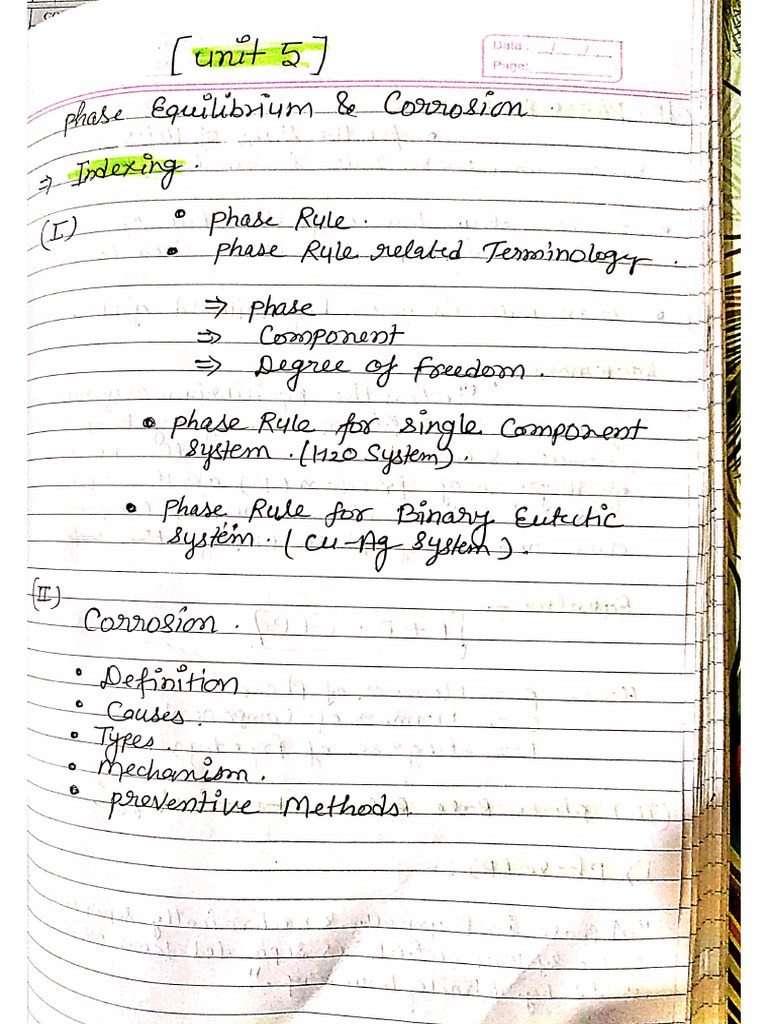 [unit 5]
Date: __/__/__
Page:
phase Equilibrium & Corrosion
⇒ Indexing.
(I)
• Phase Rule.
• Phase Rule related Terminology.
⇒ phase
⇒ Component
⇒ Degree of freedom.
• phase Rule for single Component
System. (H2O System).
• Phase Rule for Binary Eutectic
System. (Cu-Ag System).
(II)
Corrosion.
• Definition
• Causes.
• Types.
• Mechanism.
• preventive Methods.